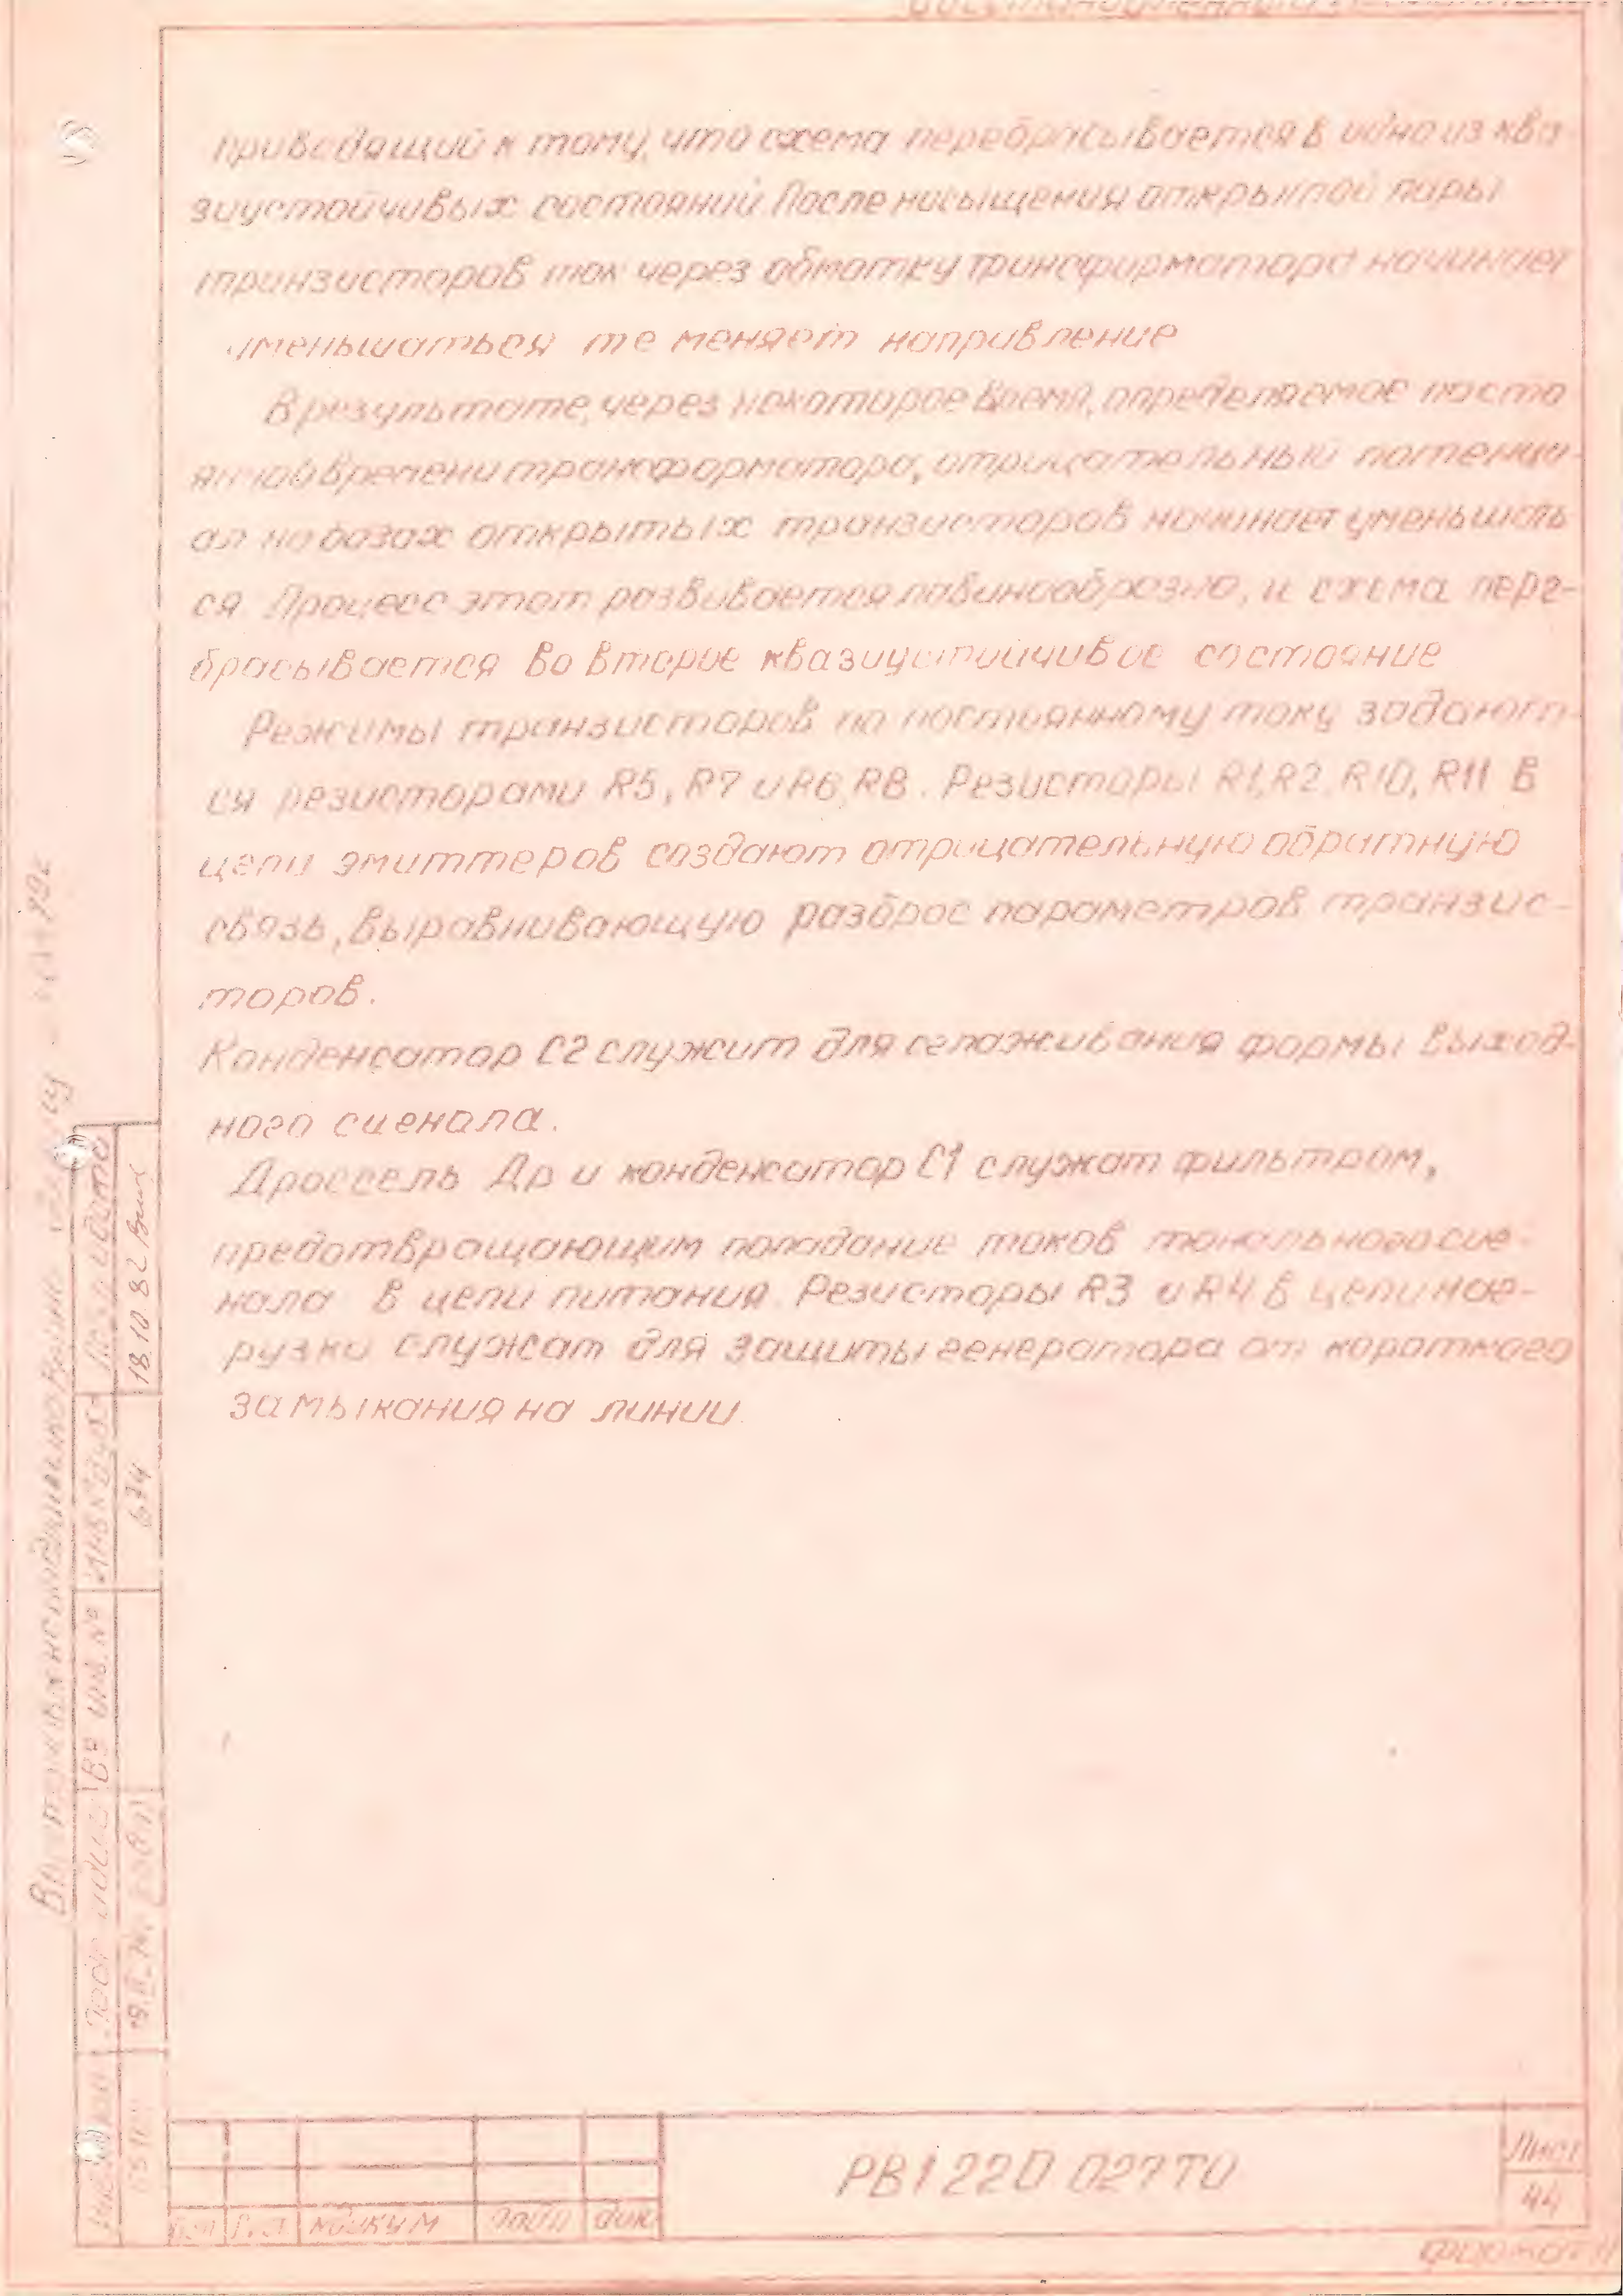 приводящий к тому, что схема перебрасывается в одно из ква-
зиустойчивых состояний. После насыщения открытой пары
транзисторов ток через обмотку трансформатора начинает
уменьшаться те меняет направление
В результате, через некоторое время, определяемое посто
янной времени трансформатора, отрицательный потенци-
ал на базах открытых транзисторов начинает уменьшать
ся. Процесс этот развивается лавинообразно, и схема пере-
брасывается во второе квазиустойчивое состояние
Режимы транзисторов по постоянному току задают-
ся резисторами R5, R7 и R6, R8. Резисторы R1, R2, R10, R11 в
цепи эмиттеров создают отрицательную обратную
связь, выравнивающую разброс параметров транзис-
торов.
Конденсатор С2 служит для сглаживания формы выход-
ного сигнала.
Дроссель Др и конденсатор С1 служат фильтром,
предотвращающим попадание токов тонального сиг-
нала в цепи питания. Резисторы R3 и R4 в цепи наг-
рузки служат для защиты генератора от короткого
замыкания на линии.
Подп и дата
18.10.82
Инв № дубл
674
Вз инв. №
Подп и дата
Изм Лист № докум Подп Дата
РВ1 220 027ТО
Лист
44
Формат 11